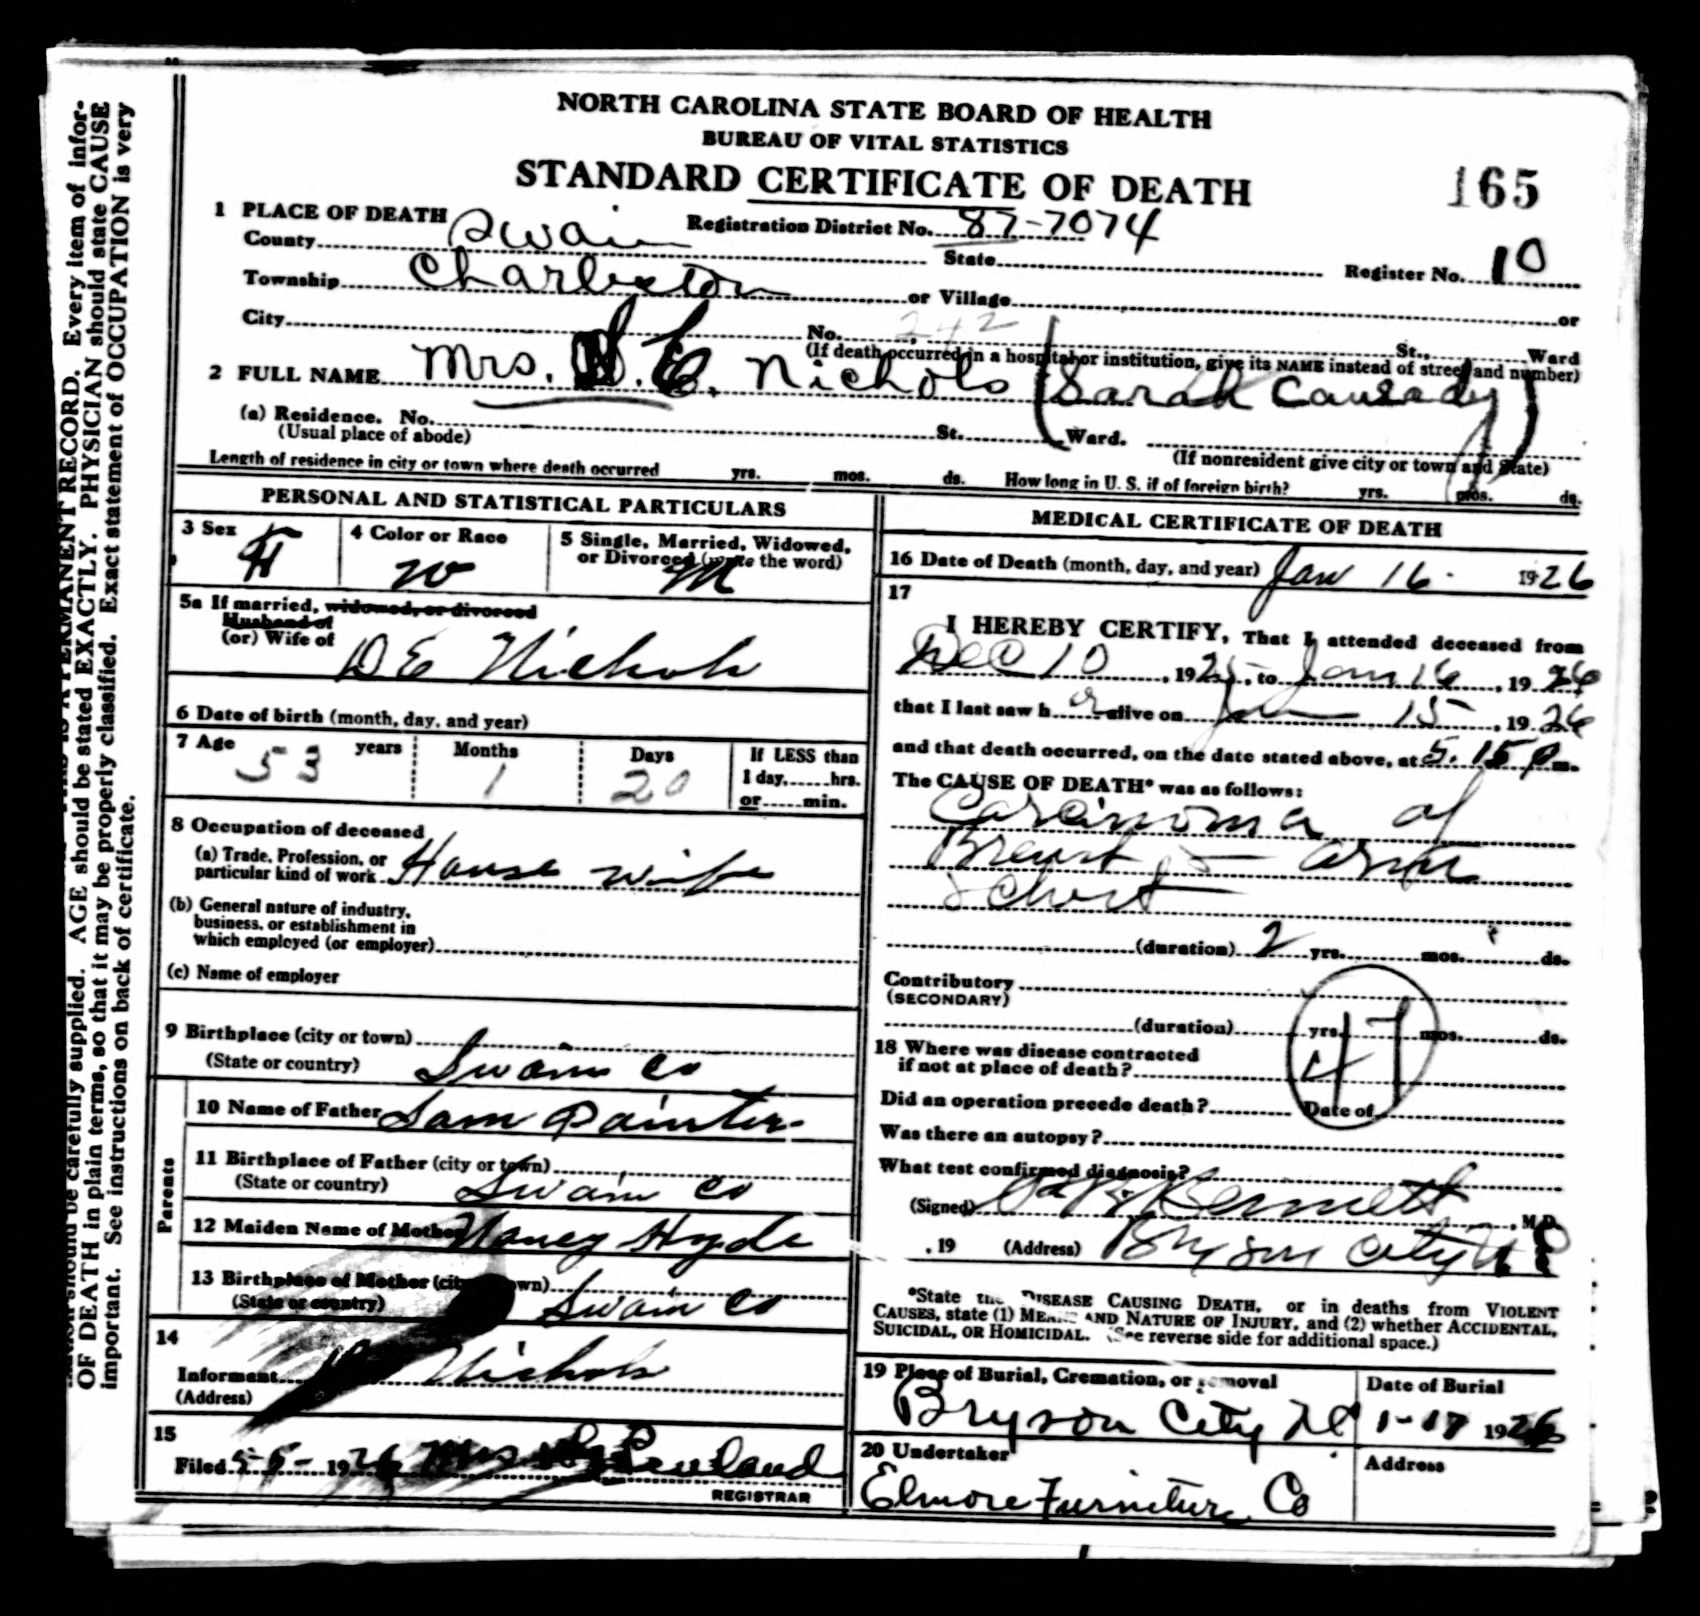 NORTH CAROLINA STATE BOARD OF HEALTH
BUREAU OF VITAL STATISTICS
STANDARD CERTIFICATE OF DEATH
165
1 PLACE OF DEATH
County Swain Registration District No. 87-7074 State Register No. 10
Township Charleston or Village or
City No. 242 St., Ward
(If death occurred in a hospital or institution, give its NAME instead of street and number)
2 FULL NAME Mrs. E. Nichols (Sarah
(a) Residence. No. St. Ward.
(Usual place of abode) (If nonresident give city or town and State)
Length of residence in city or town where death occurred yrs. mos. ds. How long in U. S. if of foreign birth? yrs. mos. ds.
PERSONAL AND STATISTICAL PARTICULARS
3 Sex F
4 Color or Race W
5 Single, Married, Widowed, or Divorced (write the word) M
5a If married, widowed, or divorced
Husband of
(or) Wife of D E Nichols
6 Date of birth (month, day, and year)
7 Age 53 years Months 1 Days 20 If LESS than 1 day, hrs. or min.
8 Occupation of deceased
(a) Trade, Profession, or particular kind of work House wife
(b) General nature of industry, business, or establishment in which employed (or employer)
(c) Name of employer
9 Birthplace (city or town)
(State or country) Swain Co
Parents
10 Name of Father Sam Painter
11 Birthplace of Father (city or town)
(State or country) Swain Co
12 Maiden Name of Mother Nancy Hyde
13 Birthplace of Mother (city or town)
(State or country) Swain Co
14
Informant Nichols
(Address)
15
Filed 5-5- 1926 Mrs Penland
REGISTRAR
MEDICAL CERTIFICATE OF DEATH
16 Date of Death (month, day, and year) Jan 16 1926
17
I HEREBY CERTIFY, That I attended deceased from
Dec 10, 1925, to Jan 16, 1926
that I last saw h er alive on Jan 15, 1926
and that death occurred, on the date stated above, at 5.15 p m.
The CAUSE OF DEATH* was as follows:
Carcinoma of
Breast & arm
& chest
(duration) 2 yrs. mos. ds.
Contributory
(SECONDARY)
(duration) yrs. mos. ds.
47
18 Where was disease contracted
if not at place of death?
Did an operation precede death? Date of
Was there an autopsy?
What test confirmed diagnosis?
(Signed) Bennett, M. D.
, 19 (Address) Bryson City N C
*State the DISEASE CAUSING DEATH, or in deaths from VIOLENT
CAUSES, state (1) MEANS AND NATURE OF INJURY, and (2) whether ACCIDENTAL,
SUICIDAL, OR HOMICIDAL. (See reverse side for additional space.)
19 Place of Burial, Cremation, or removal
Bryson City N C
Date of Burial
1-17 1926
20 Undertaker
Elmore Furniture Co
Address
mation should be carefully supplied. AGE should be stated EXACTLY. PHYSICIAN should state CAUSE
OF DEATH in plain terms, so that it may be properly classified. Exact statement of OCCUPATION is very
important. See instructions on back of certificate.
PERMANENT RECORD. Every item of infor-